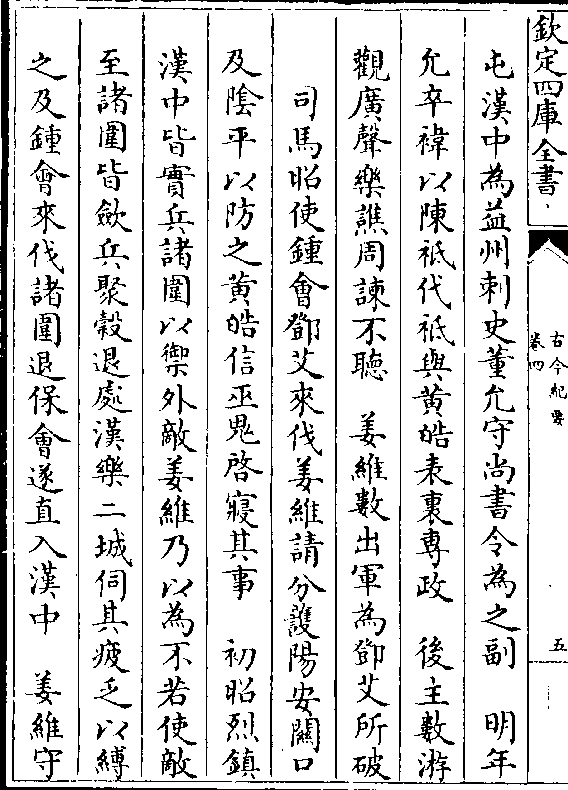 欽定四庫全書
古今紀要
卷四
五
屯漢中為益州刺史董允守尚書令為之副　明年
允卒禕以陳祗代祗與黃皓表裏專政　後主數游
觀廣聲樂譙周諫不聽　姜維數出軍為鄧艾所破
司馬昭使鍾會鄧艾來伐姜維請分護陽安關口
及陰平以防之黃皓信巫鬼啓寢其事　初昭烈鎮
漢中皆實兵諸圍以禦外敵姜維乃以為不若使敵
至諸圍皆斂兵聚穀退處漢樂二城伺其疲乏以縛
之及鍾會來伐諸圍退保會遂直入漢中　姜維守